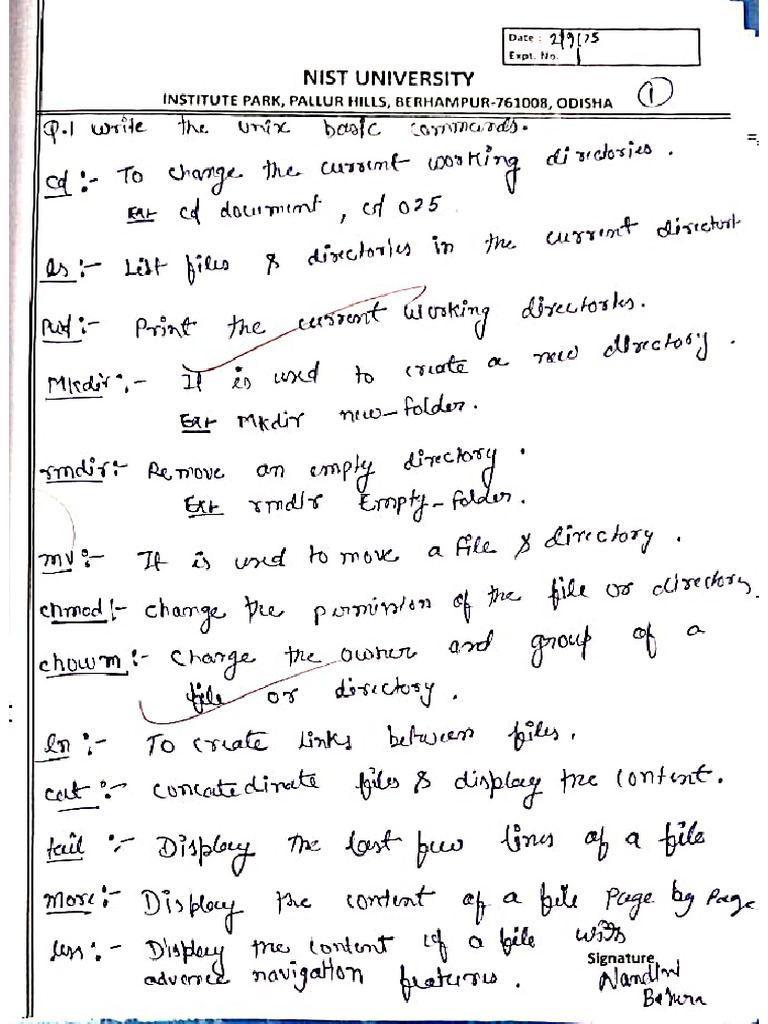 Date : 2/9/25
Expt. No. 1
NIST UNIVERSITY
INSTITUTE PARK, PALLUR HILLS, BERHAMPUR-761008, ODISHA
1
Q.1 write the unix basic commands.
cd :- To change the current working directories.
Ex:- cd document, cd 025
ls :- List files & directories in the current director
pwd :- Print the current working directories.
Mkdir :- It is used to create a new directory.
Ex:- Mkdir new-folder.
rmdir :- Remove an empty directory.
Ex:- rmdir Empty-folder.
mv :- It is used to move a file & directory.
chmod :- change the permission of the file or directory
chowm :- change the owner and group of a
file or directory.
ln :- To create links between files.
cat :- concatedinate files & display the content.
tail :- Display the last few lines of a file
more :- Display the content of a file page by page
less :- Display the content of a file with
advance navigation features.
Signature
Nandini
Behera